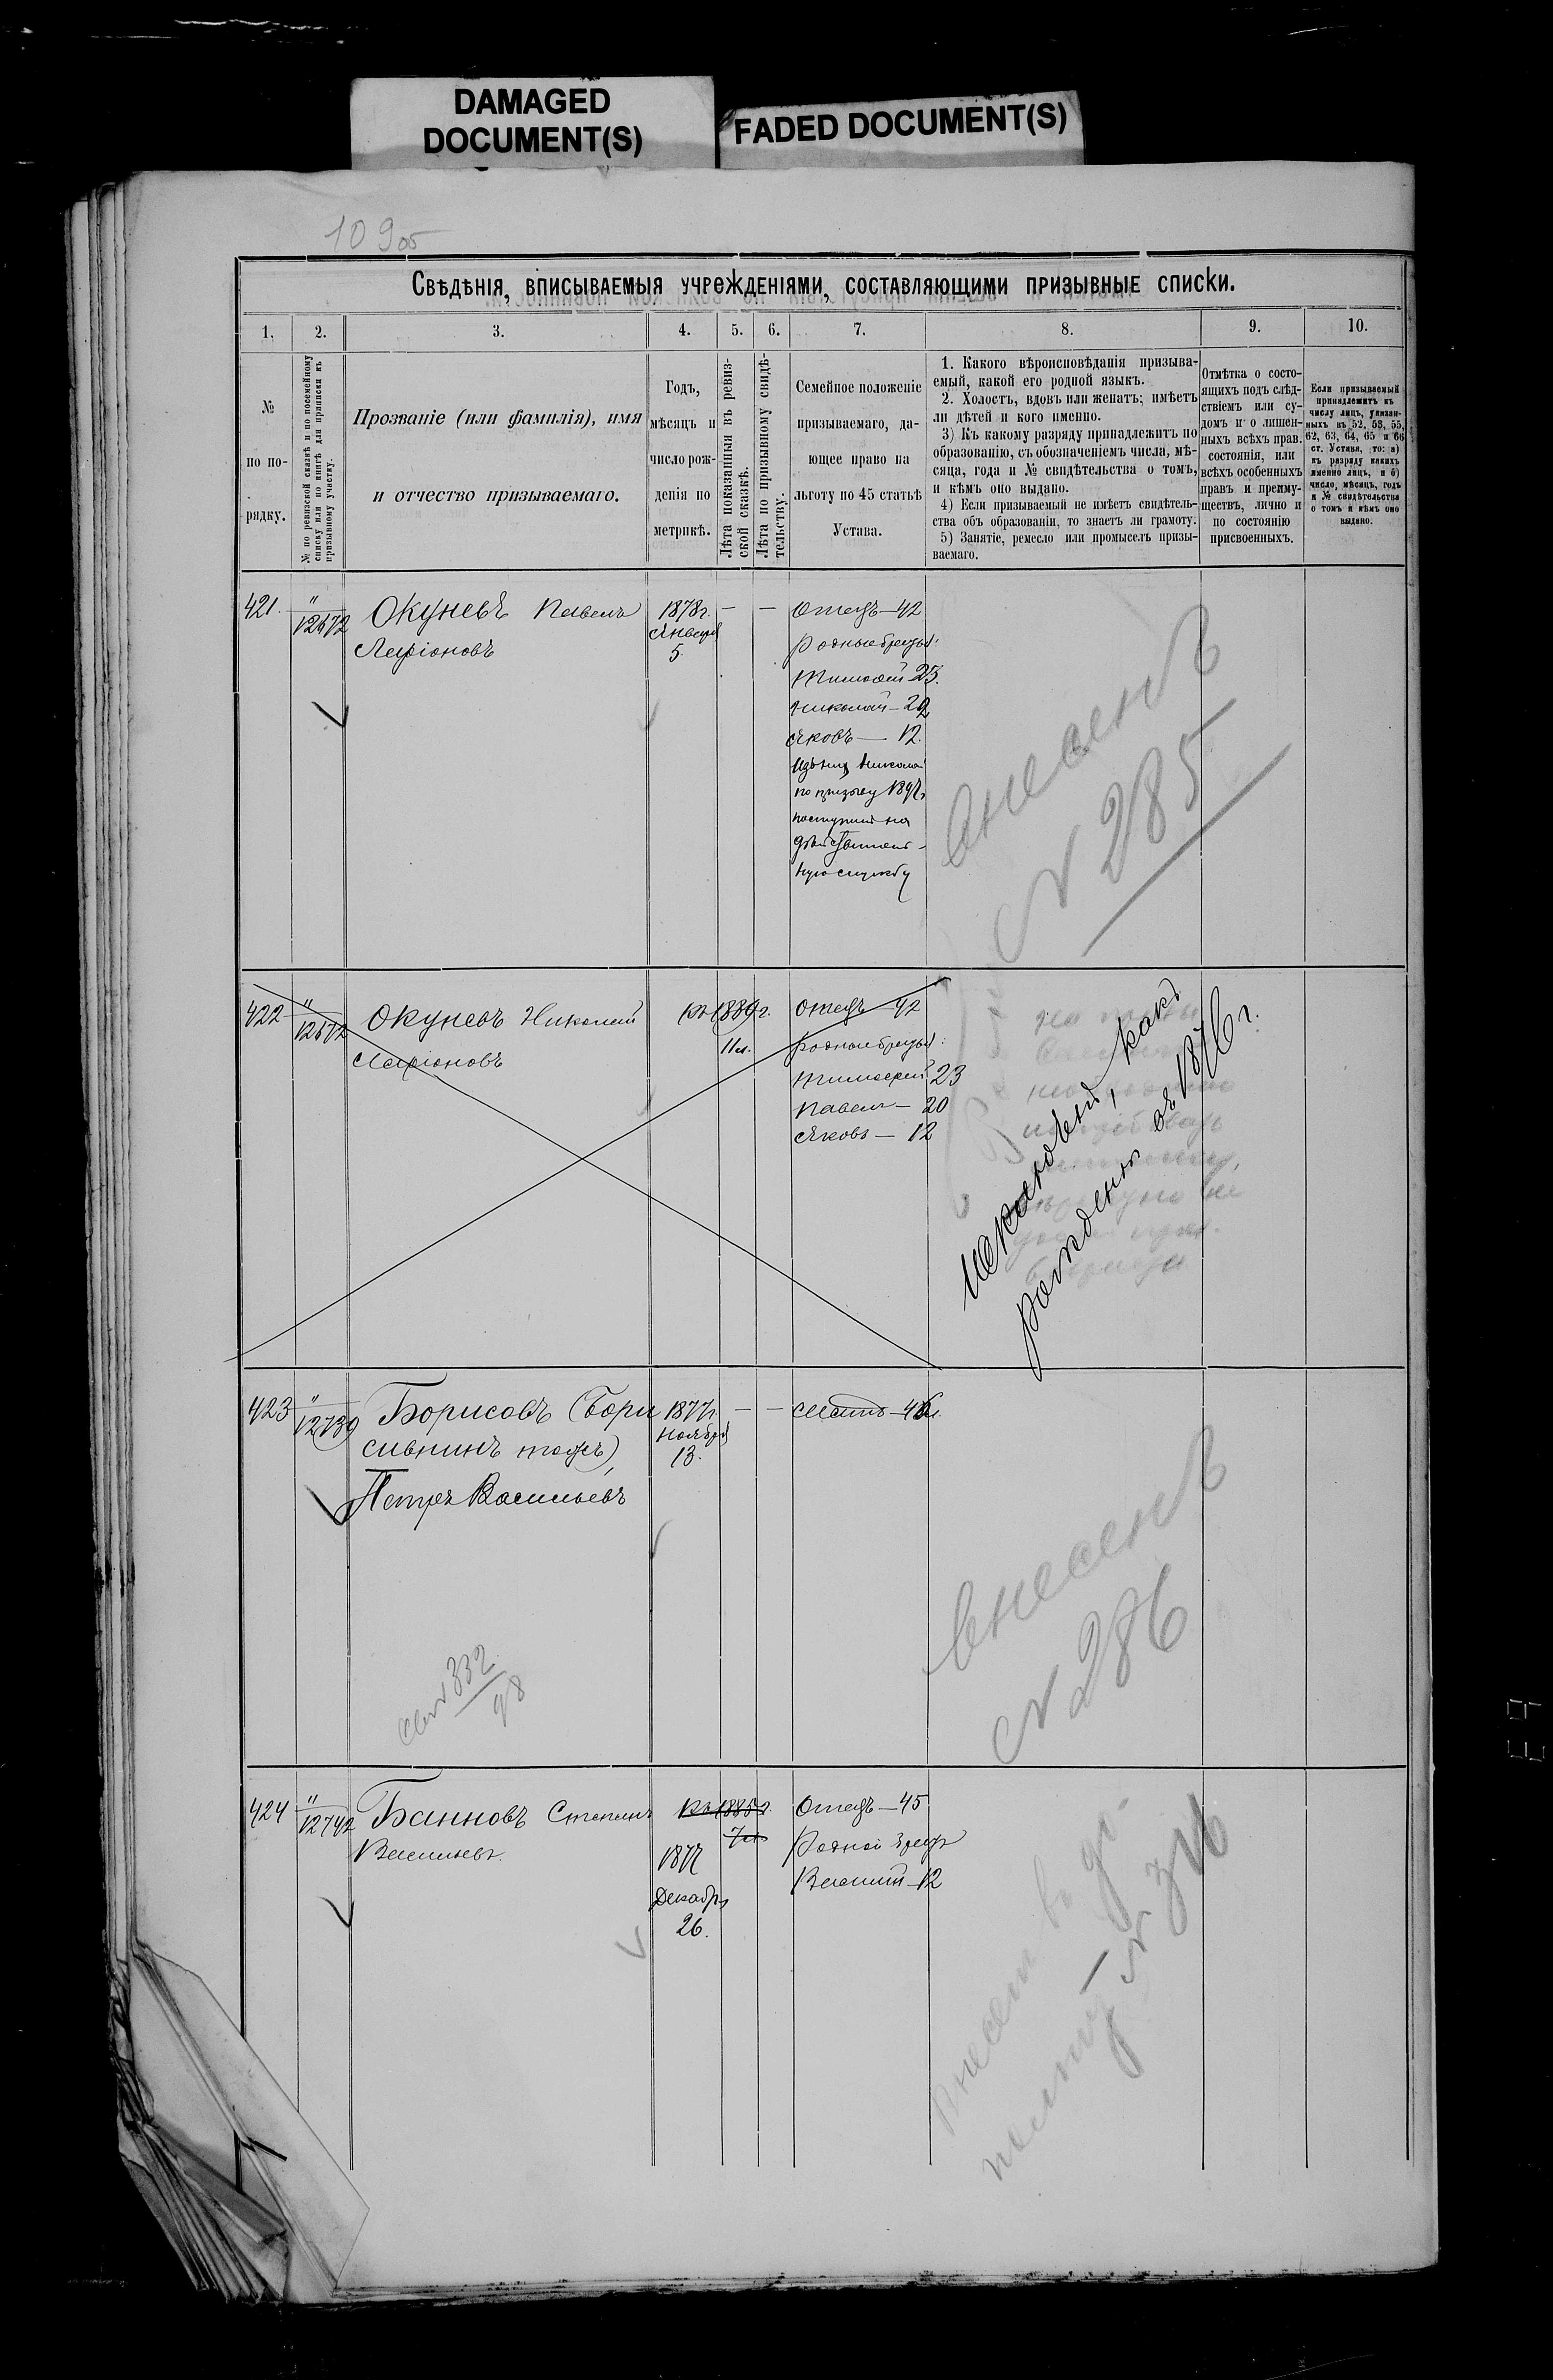 DAMAGED
DOCUMENT(S)
FADED DOCUMENT(S)
10905
Свѣдѣнія, вписываемыя учрежденіями, составляющими призывные списки.
1.
2.
3.
4.
5.
6.
7.
8.
9.
10.
№
по по-
рядку.
№ по ревизской сказкѣ и по посемейному
списку или по книгѣ для приписки къ
призывному участку.
Прозваніе (или фамилія), имя
и отчество призываемаго.
Годъ,
мѣсяцъ и
число рож-
денія по
метрикѣ.
Лѣта показанныя въ ревиз-
ской сказкѣ.
Лѣта по призывному свидѣ-
тельству.
Семейное положеніе
призываемаго, да-
ющее право на
льготу по 45 статьѣ
Устава.
1. Какого вѣроисповѣданія призыва-
емый, какой его родной языкъ.
2. Холостъ, вдовъ или женатъ; имѣетъ
ли дѣтей и кого именно.
3) Къ какому разряду принадлежитъ по
образованію, съ обозначеніемъ числа, мѣ-
сяца, года и № свидѣтельства о томъ,
и кѣмъ оно выдано.
4) Если призываемый не имѣетъ свидѣтель-
ства объ образованіи, то знаетъ ли грамоту.
5) Занятіе, ремесло или промыселъ призы-
ваемаго.
Отмѣтка о состо-
ящихъ подъ слѣд-
ствіемъ или су-
домъ и о лишен-
ныхъ всѣхъ прав.
состоянія, или
всѣхъ особенныхъ
правъ и преиму-
ществъ, лично и
по состоянію
присвоенныхъ.
Если призываемый
принадлежитъ къ
числу лицъ, указан-
ныхъ въ 52, 53, 55,
62, 63, 64, 65 и 66
ст. Устава, то: а)
къ разряду какихъ
именно лицъ, и б)
число, мѣсяцъ, годъ
и № свидѣтельства
о томъ и кѣмъ оно
выдано.
421.
"
12672
Окуневъ Павелъ
Ларіоновъ
1878г.
Января
5.
—
—
Отецъ—42
Родные братья:
Тимофей 25.
Николай—22
Яковъ—12.
Изъ нихъ Николай
по призыву 1897г.
поступилъ на
дѣйствитель-
ную службу
внесенъ
№ 285
422
"
12672
Окуневъ Николай
Ларіоновъ
Къ 1889г.
11л.
Отецъ 42
Родные братья:
Тимофей 23
Павелъ—20
Яковъ—12
какъ
рожденный въ 1876г.
423
"
12739
Борисовъ (Бори
сивнинъ тожъ),
Петръ Васильевъ
1877г.
Ноября
13.
—
—
Мать—46л.
332
98
внесенъ
№ 286
424
"
12742
Банновъ Степанъ
Васильевъ.
Къ 1885г.
7л.
1877
Декабря
26.
Отецъ—45
Родной братъ
Василій—12
внесенъ въ
№ 316